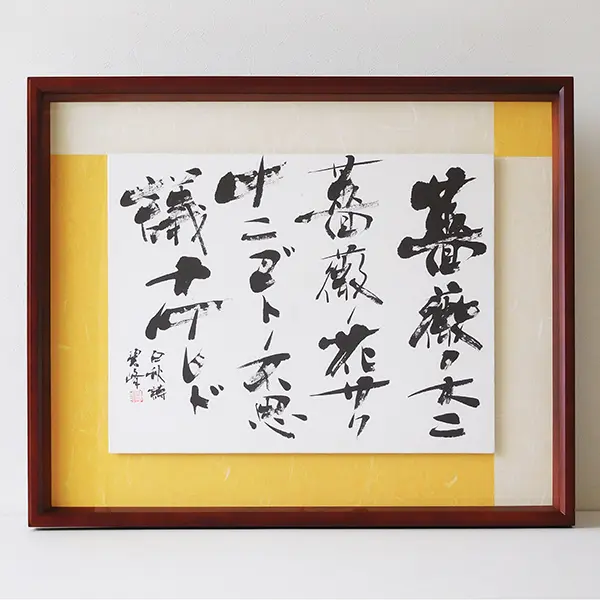 薔薇ノ木ニ
薔薇ノ花サク
ナニゴトノ不思
議ナケレド
白秋詩